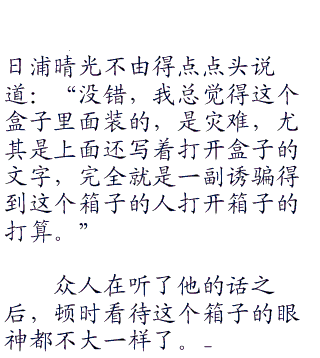 日浦晴光不由得点点头说
道：“没错，我总觉得这个
盒子里面装的，是灾难，尤
其是上面还写着打开盒子的
文字，完全就是一副诱骗得
到这个箱子的人打开箱子的
打算。”
众人在听了他的话之
后，顿时看待这个箱子的眼
神都不大一样了。